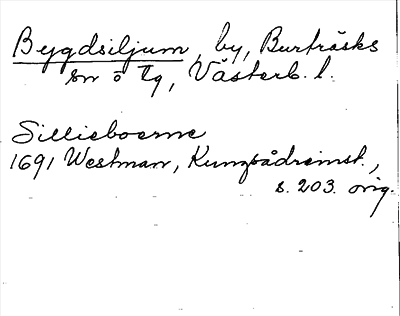 Bygdsiljum, by, Burträsks
sn o tg, Västerb. l.
Sillieboerne
1691 Westman, Kungsådreinst.,
s. 203. orig.